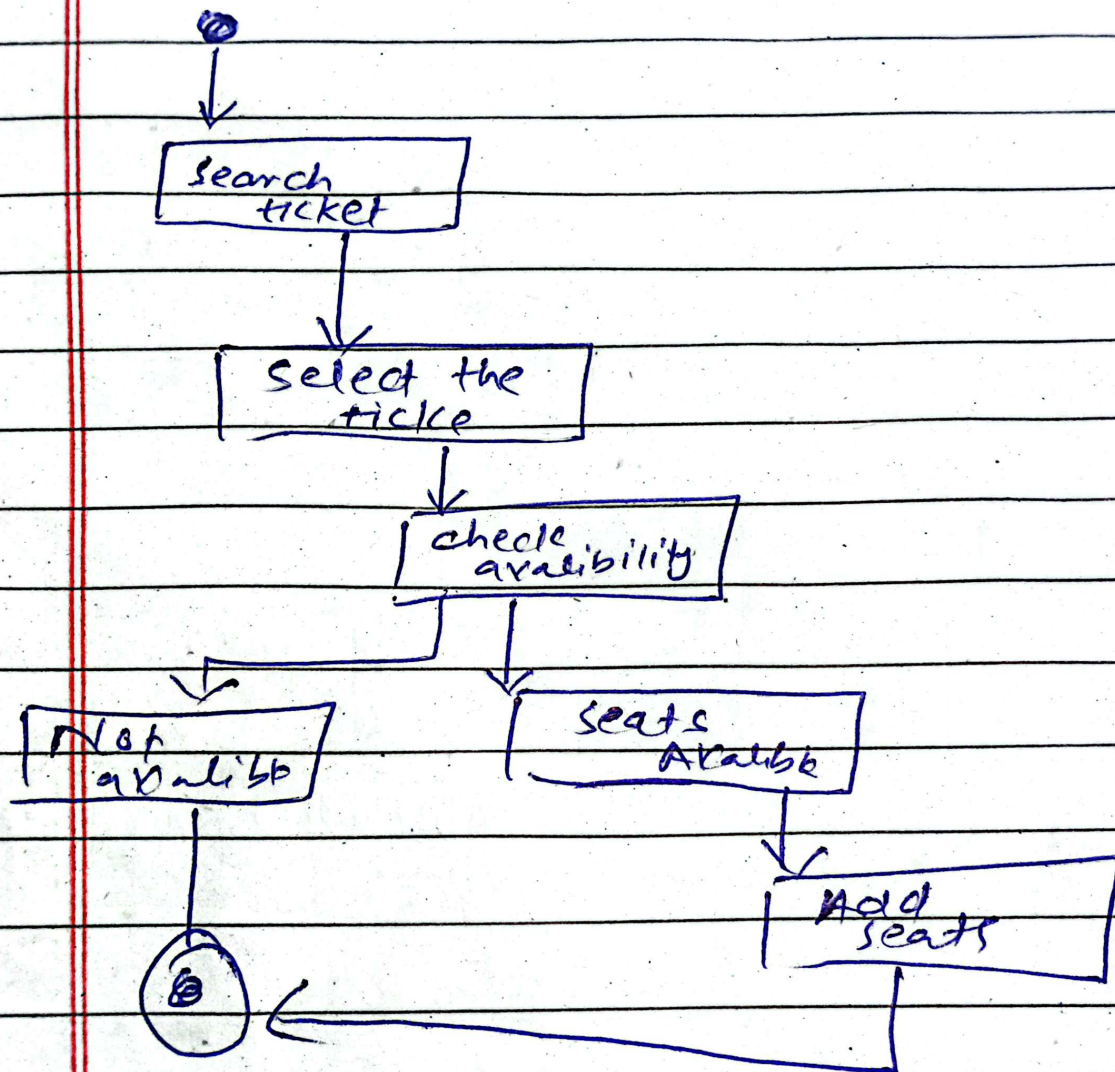 Search
ticket
Select the
ticke
check
avalibility
Not
avalibb
seats
Avalibb
Add
seats